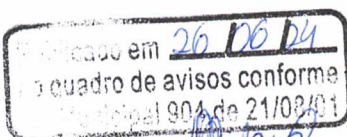 cado em 26 06 24
o quadro de avisos conforme
cipal 904 de 21/08/01